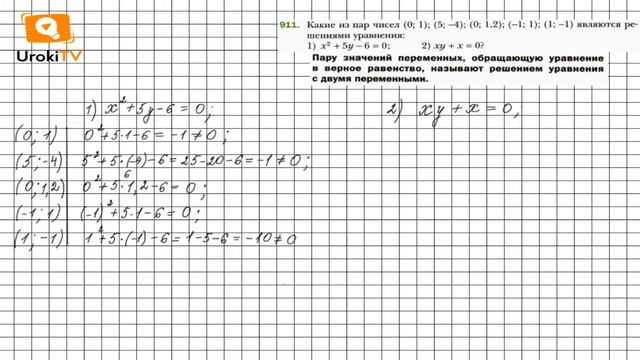 UrokiTV
911. Какие из пар чисел (0; 1); (5; –4); (0; 1,2); (–1; 1); (1; –1) являются ре-
шениями уравнения:
1) x² + 5y – 6 = 0; 2) xy + x = 0?
Пару значений переменных, обращающую уравнение
в верное равенство, называют решением уравнения
с двумя переменными.
1) x² + 5y – 6 = 0; 2) xy + x = 0,
(0; 1) 0² + 5·1 – 6 = –1 ≠ 0;
(5; –4) 5² + 5·(–4) – 6 = 25 – 20 – 6 = –1 ≠ 0;
6
(0; 1,2) 0² + 5·1,2 – 6 = 0;
(–1; 1) (–1)² + 5·1 – 6 = 0;
(1; –1) 1² + 5·(–1) – 6 = 1 – 5 – 6 = –10 ≠ 0